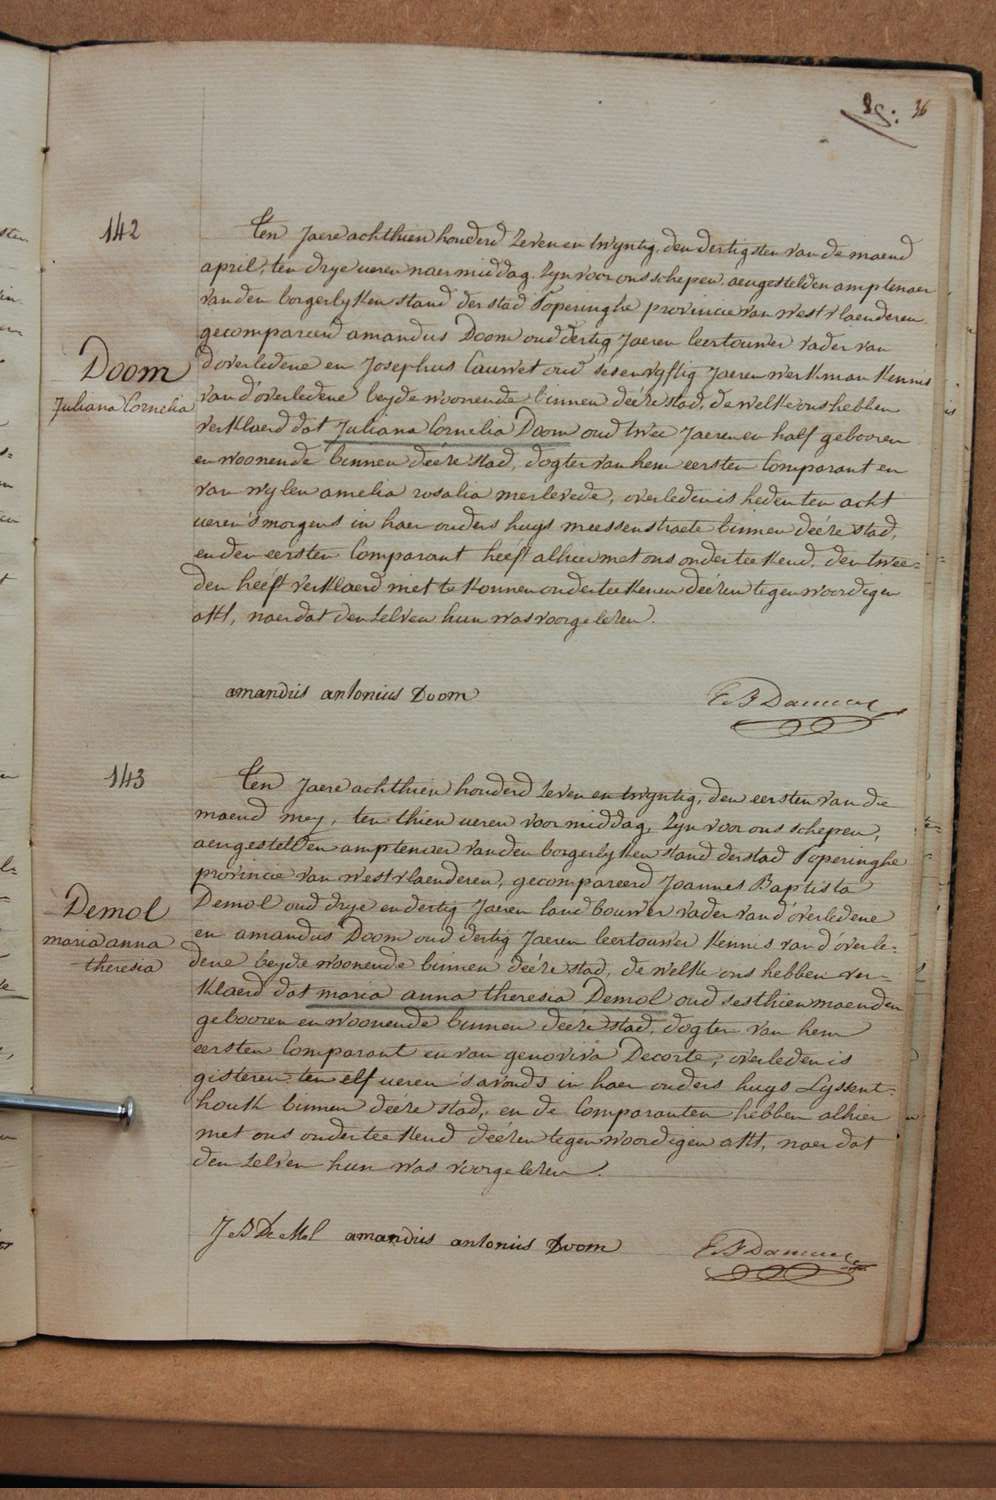 36
142
Ten Jaere achthien honderd zeven en twyntig, den dertigsten van de maend
april, ten drye ueren naermiddag. Zyn voor ons schepen, aengestelden amptenaer
van den borgerlyken stand der stad Poperinghe provincie van westvlaenderen
gecompareerd amandus Doom oud dertig Jaeren leertouwer vader van
d'overledene en Josephus Cauwet oud sesenvyftig Jaeren werkman Kennis
van d'overledene beyde woonende binnen deéze stad, de welke ons hebben
verklaerd dat Juliana Cornelia Doom oud twee Jaeren en half gebooren
en woonende binnen deéze stad, dogter van hem eersten Comparant en
van wylen amelia rosalia merlevede, overleden is heden ten acht
ueren 's morgens in haer ouders huys meessenstraete binnen deéze stad,
en den eersten Comparant heeft alhier met ons onderteekend, den twee=
den heeft verklaerd niet te konnen onderteekenen deézen tegenwoordigen
akt, naer dat den zelven hun was voorgelezen.
Doom
Juliana Cornelia
amandus antonius Doom
143
Ten Jaere achthien honderd zeven en twyntig, den eersten van de
maend mey, ten thien ueren voormiddag, Zyn voor ons schepen,
aengestelden amptenaer van den borgerlyken stand der stad Poperinghe
provincie van westvlaenderen, gecompareerd Joannes Baptista
Demol oud drye en dertig Jaeren landbouwer vader van d'overledene
en amandus Doom oud dertig Jaeren leertouwer Kennis van d'overle=
dene beyde woonende binnen deéze stad, de welke ons hebben ver=
klaerd dat maria anna theresia Demol oud sesthien maenden
gebooren en woonende binnen deéze stad, dogter van hem
eersten Comparant en van genoviva Decorte, overleden is
gisteren ten elf ueren 's avonds in haer ouders huys Lyssent=
houk binnen deéze stad, en de Comparanten hebben alhier
met ons onderteekend deézen tegenwoordigen akt, naer dat
den zelven hun was voorgelezen.
Demol
maria anna
theresia
J B De Mol amandus antonius Doom